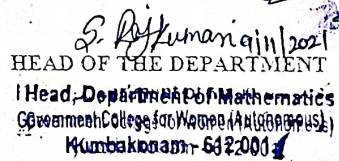 S. Rajkumari 9/11/2021
HEAD OF THE DEPARTMENT
Head, Department of Mathematics
Government College for Women (Autonomous)
Kumbakonam - 612 001